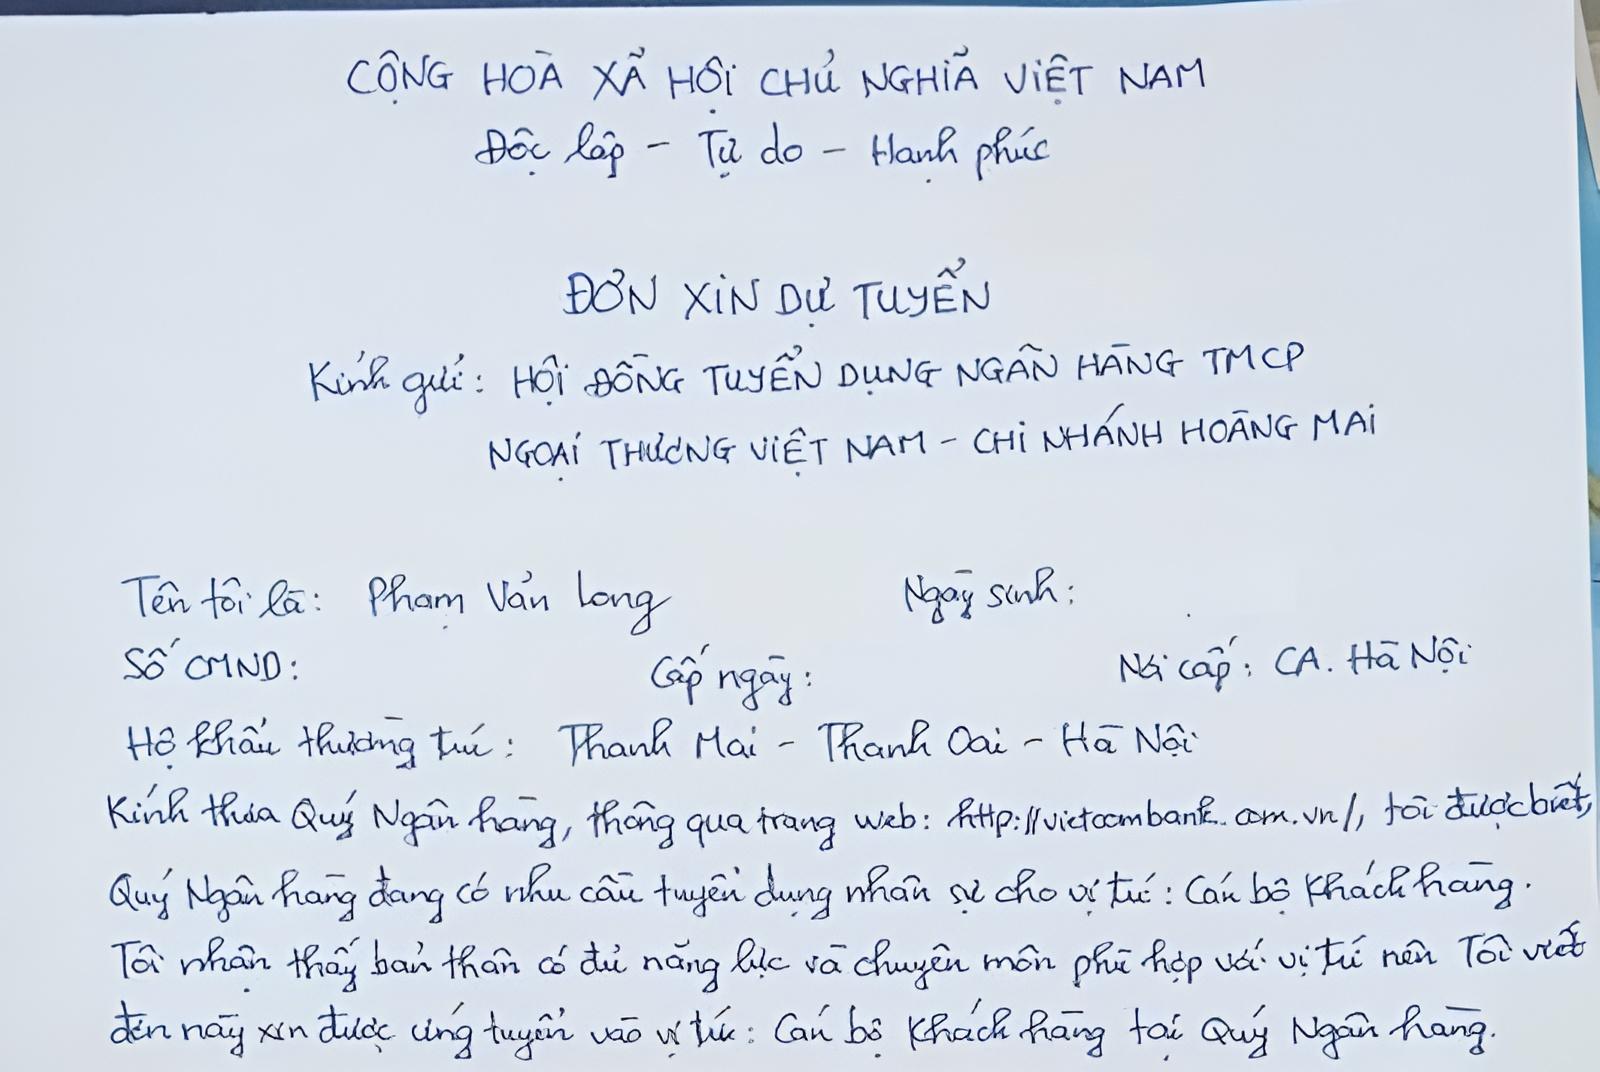 CỘNG HOÀ XÃ HỘI CHỦ NGHĨA VIỆT NAM
Độc lập - Tự do - Hạnh phúc
ĐƠN XIN DỰ TUYỂN
Kính gửi: HỘI ĐỒNG TUYỂN DỤNG NGÂN HÀNG TMCP
NGOẠI THƯƠNG VIỆT NAM - CHI NHÁNH HOÀNG MAI
Tên tôi là: Phạm Văn Long Ngày sinh:
Số CMND: Cấp ngày: Nơi cấp: CA. Hà Nội
Hộ khẩu thường trú: Thanh Mai - Thanh Oai - Hà Nội
Kính thưa Quý Ngân hàng, thông qua trang web: http://vietcombank.com.vn/, tôi được biết,
Quý Ngân hàng đang có nhu cầu tuyển dụng nhân sự cho vị trí: Cán bộ Khách hàng.
Tôi nhận thấy bản thân có đủ năng lực và chuyên môn phù hợp với vị trí nên Tôi viết
đơn này xin được ứng tuyển vào vị trí: Cán bộ Khách hàng tại Quý Ngân hàng.